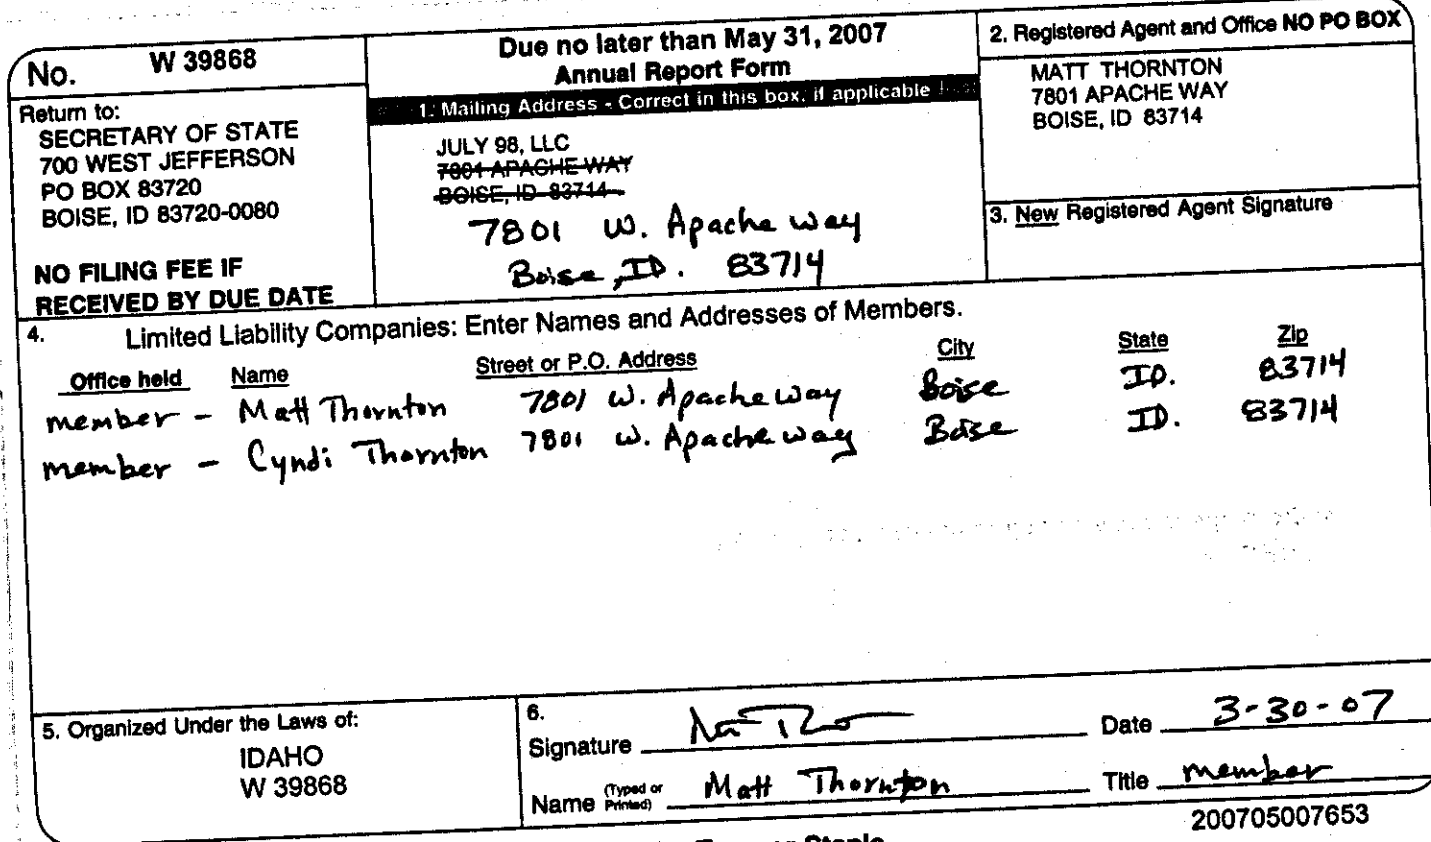 No. W 39868
Return to:
SECRETARY OF STATE
700 WEST JEFFERSON
PO BOX 83720
BOISE, ID 83720-0080
NO FILING FEE IF
RECEIVED BY DUE DATE
Due no later than May 31, 2007
Annual Report Form
1. Mailing Address - Correct in this box, if applicable !
JULY 98, LLC
7801 APACHE WAY
BOISE, ID 83714
7801 W. Apache way
Boise, ID. 83714
2. Registered Agent and Office NO PO BOX
MATT THORNTON
7801 APACHE WAY
BOISE, ID 83714
3. New Registered Agent Signature
4. Limited Liability Companies: Enter Names and Addresses of Members.
Office held Name Street or P.O. Address City State Zip
member - Matt Thornton 7801 W. Apache way Boise ID. 83714
member - Cyndi Thornton 7801 W. Apache way Boise ID. 83714
5. Organized Under the Laws of:
IDAHO
W 39868
6.
Signature Date 3-30-07
Name (Typed or Printed) Matt Thornton Title member
200705007653